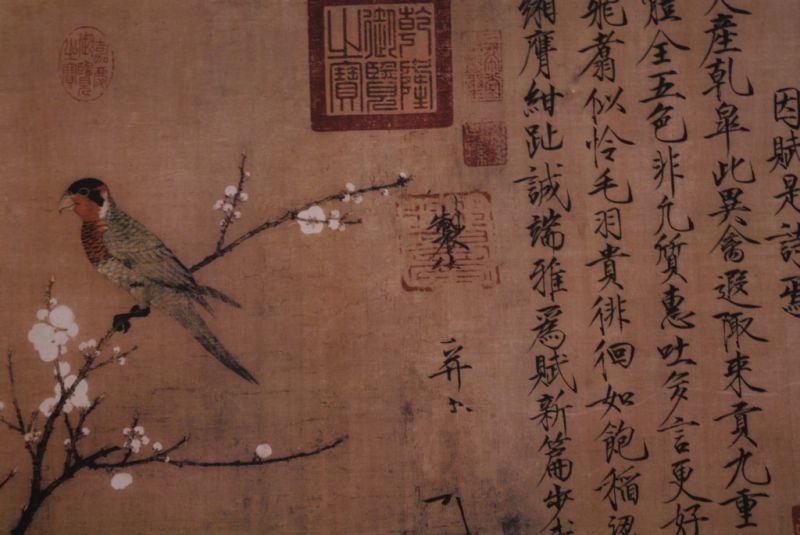 因賦是詩焉
天產乾皐此異禽遐陬來貢九重
體全五色非凡質惠吐多言更好
飛翥似怜毛羽貴徘徊如飽稻
緗膺紺趾誠端雅爲賦新篇步
製
并
乾隆御覽之寶
嘉慶御覽之寶